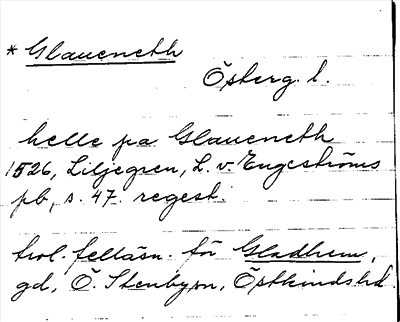 * Glaueneth
Österg. l.
helle pa Glaueneth
1526, Liljegren, L. v. Engeströms
pb, s. 47. regest.
trol. felläsn. för Gladhem,
gd, Ö. Stenbysn, Östkindshd.